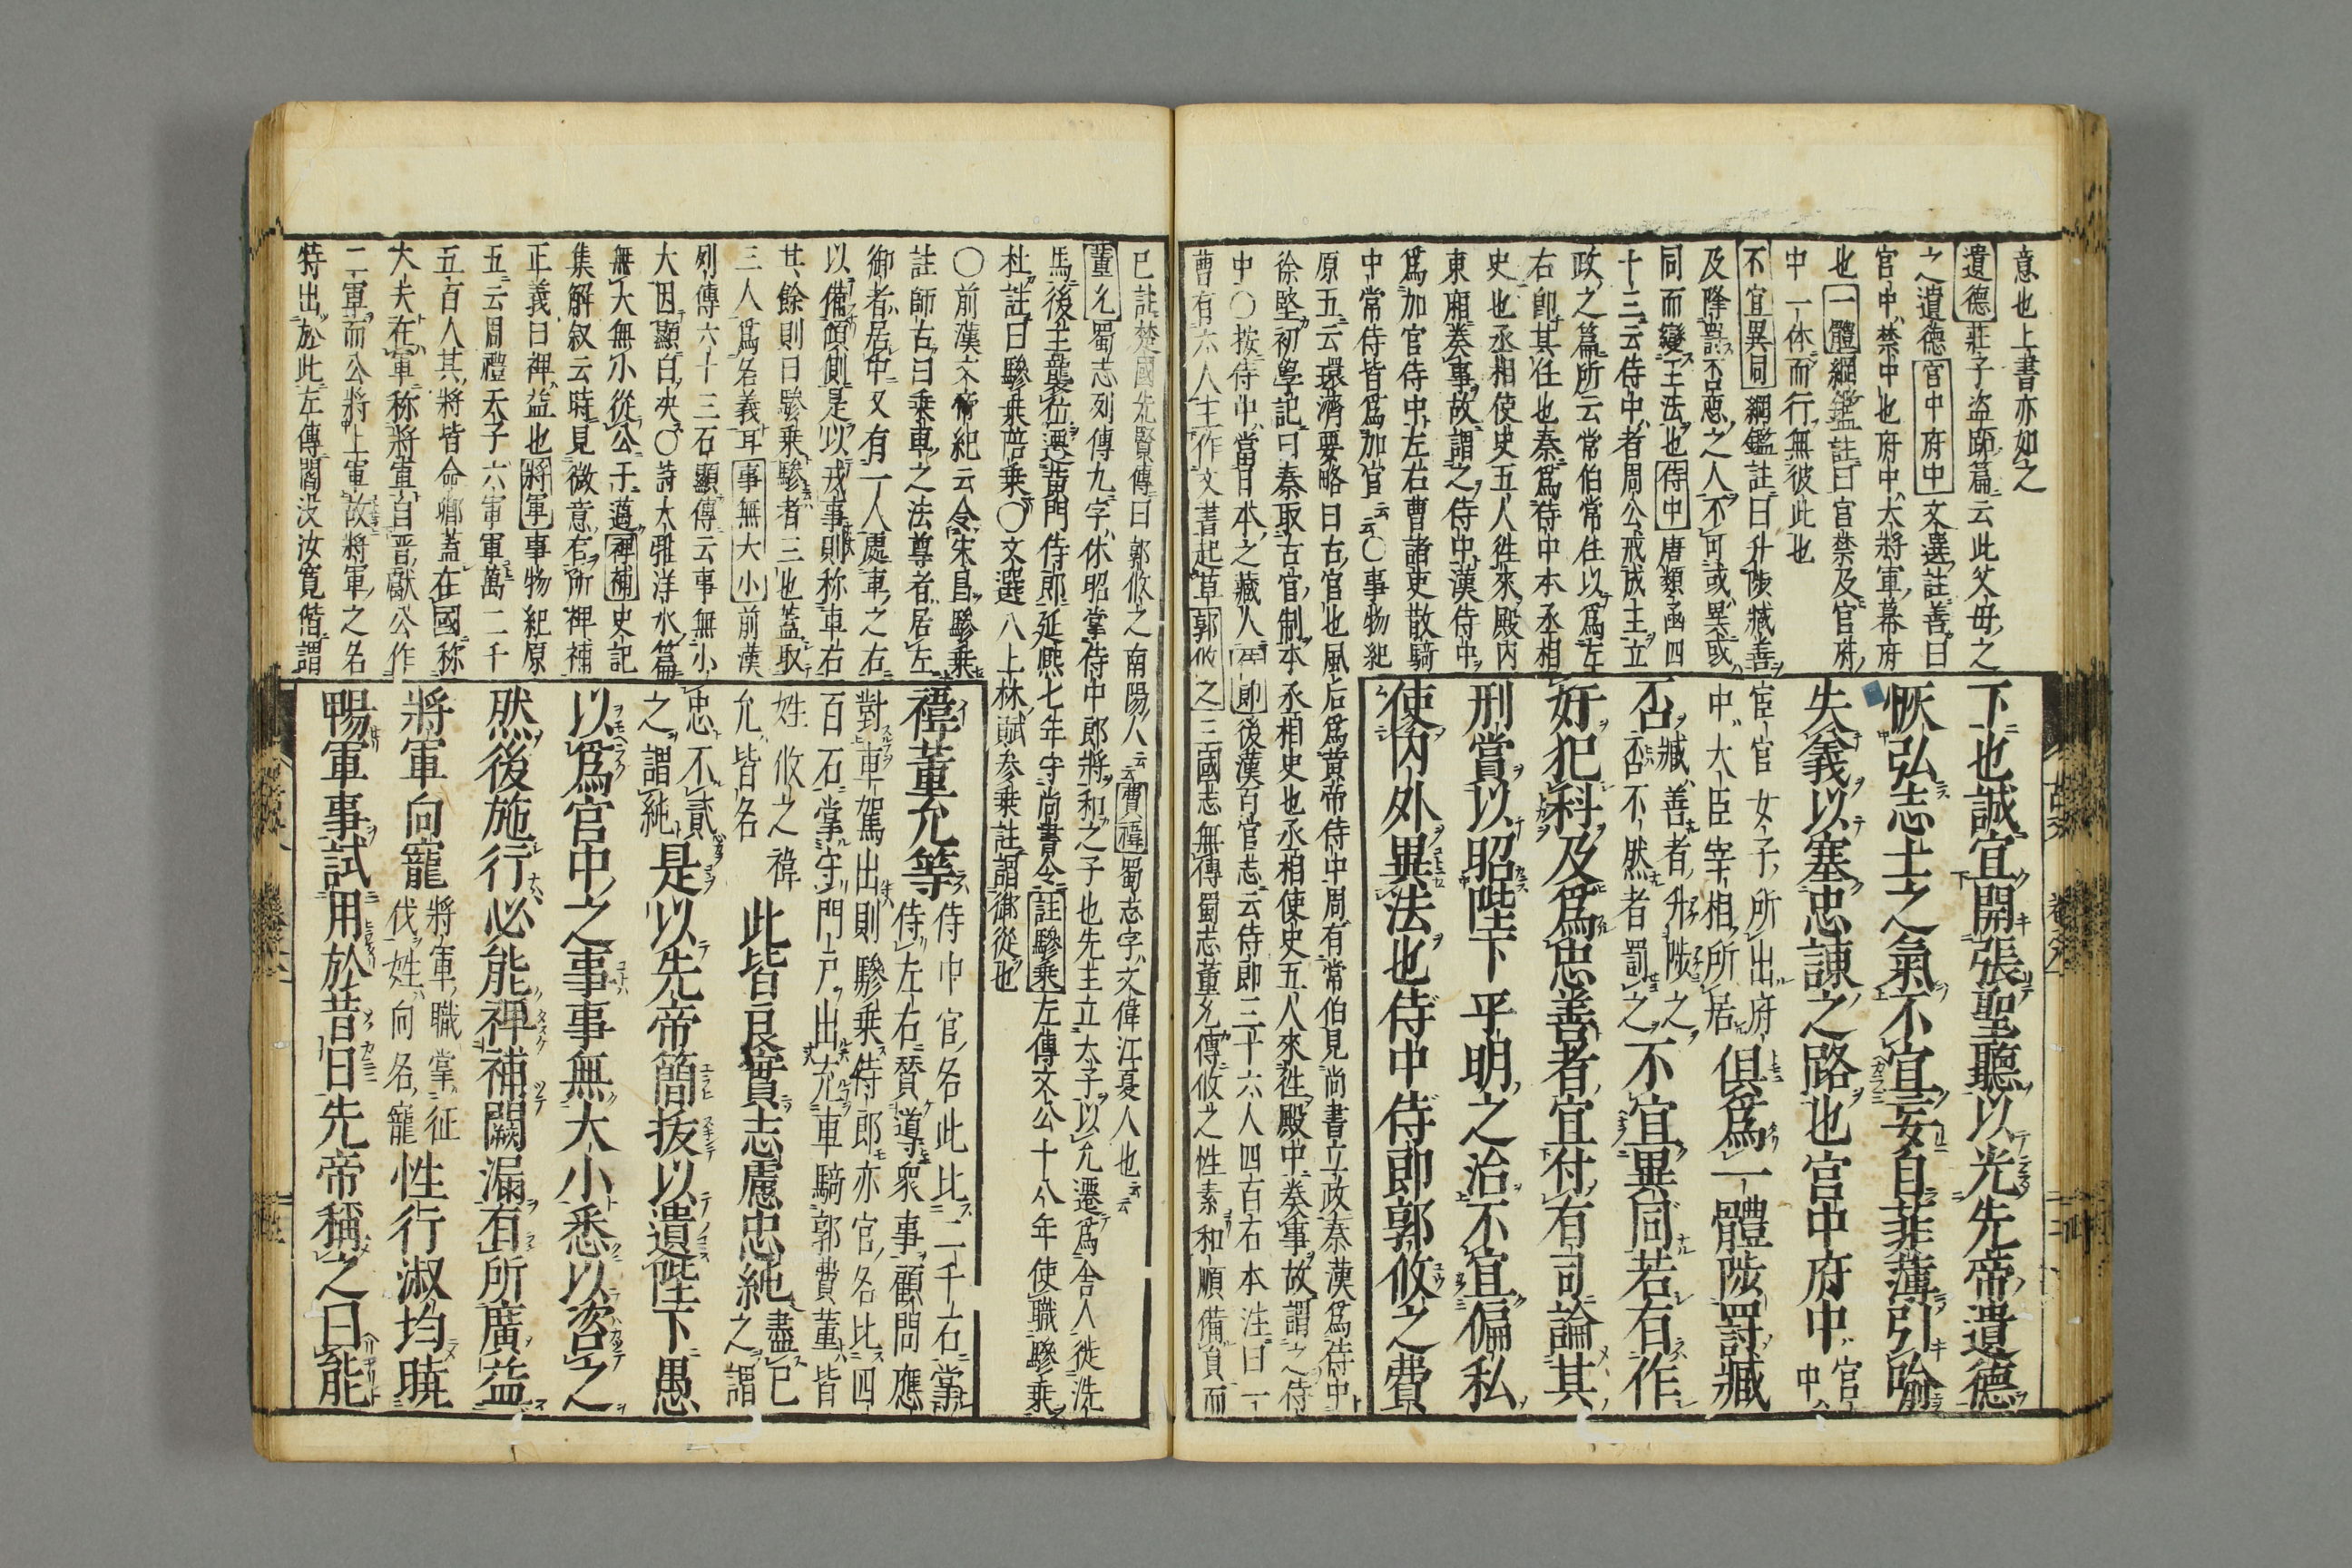 意也上書亦如之
遺德莊子盗跖篇云此父母之
之遺德宮中府中文選註善曰
宮中禁中也府中大將軍幕府
也一體綱鑑註曰宮禁及官府
中一体而行無彼此也
不宜異同綱鑑註曰升陟臧善
及降罰否惡之人不可或異或
同而變王法也侍中唐類函四
十三云侍中者周公戒成王立
政之篇所云常伯常任以爲左
右卽其任也秦爲侍中本丞相
史也丞相使史五人徃來殿内
東廂奏事故謂之侍中漢侍中
爲加官侍中左右曹諸吏散騎
中常侍皆爲加官云云○事物紀
原五云環濟要略曰古官也風后爲黄帝侍中周有常伯見尚書立政秦漢爲侍中
徐堅初學記曰秦取古官制本丞相史也丞相使史五人來徃殿中奏事故謂之侍
中○按侍中當日本之藏人侍郎後漢百官志云侍郎三十六人四百石本注曰一
曹有六人主作文書起草郭攸之三國志無傳蜀志董允傳攸之性素和順備員而
下也誠宜開張聖聽以光先帝遺德
恢弘志士之氣不宜妄自菲薄引喩
失義以塞忠諫之路也宮中府中宮中
宦官女子所出府
中大臣宰相所居俱爲一體陟罰臧
否臧善者升陟之
否不然者罰之不宜異同若有作
奸犯科及爲忠善者宜付有司論其
刑賞以昭陛下平明之治不宜偏私
使内外異法也侍中侍郎郭攸之費
已註楚國先賢傳曰郭攸之南陽人云云費禕蜀志字文偉江夏人也云云
董允蜀志列傳九字休昭掌侍中郎將和之子也先主立太子以允遷爲舍人徙洗
馬後主襲位遷黄門侍郎延熙七年守尚書令註驂乗左傳文公十八年使職驂乗
杜註曰驂乗陪乗○文選八上林賦参乗註謂御從也
○前漢文帝紀云令宋昌驂乗
註師古曰乗車之法尊者居左
御者居中又有一人處車之右
以備傾側是以戎事則称車右
其餘則曰驂乗驂者三也蓋取
三人爲名義耳事無大小前漢
列傳六十三石顯傳云事無小
大因顯白决○詩大雅泮水篇
無大無小從公于邁裨補史記
集解叙云時見微意有所裨補
正義曰裨益也將軍事物紀原
五云周禮天子六軍軍萬二千
五百人其將皆命卿蓋在國称
大夫在軍称將軍自晋獻公作
二軍而公將上軍故將軍之名
特出於此左傳閻没汝寛偕謂
禕董允等侍中官名此比二千石掌
侍左右賛導衆事顧問應
對車駕出則驂乗侍郎亦官名比四
百石掌守門戸出充車騎郭費董皆
姓攸之禕
允皆名此皆良實志慮忠純盡已之謂
忠不貳
之謂純是以先帝簡拔以遺陛下愚
以爲宮中之事事無大小悉以咨之
然後施行必能裨補闕漏有所廣益
將軍向寵將軍職掌征
伐姓向名寵性行淑均曉
暢軍事試用於昔日先帝稱之曰能